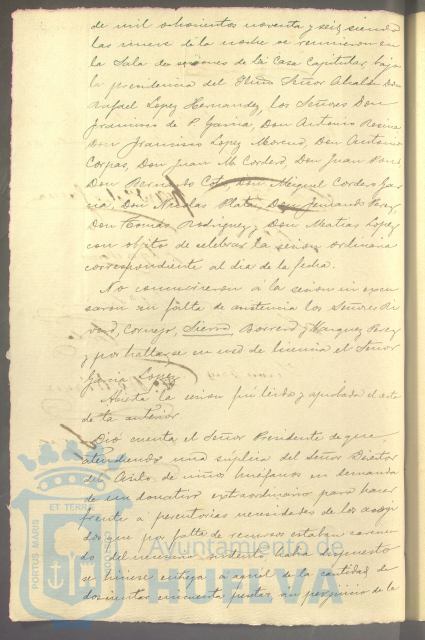 de mil ochocientos noventa y seis siendo
las nueve de la noche se reunieron en
la Sala de sesiones de la Casa Capitular bajo
la presidencia del Iltmo Señor Alcalde Don
Rafael Lopez Hernandez, los Señores Don
Francisco de P. Garcia, Don Antonio
Don Francisco Lopez Moreno, Don Antonio
Corpas, Don Juan M. Cordero, Don Juan
Don Bernardo Coto, Don Miguel Cordero Gar
cia, Don Nicolas Plata, Don Fernando Perez,
Don Tomás Rodriguez y Don Matias Lopez
con objeto de celebrar la sesion ordinaria
correspondiente al dia de la fecha.
No concurrieron á la sesion ni excu
saron su falta de asistencia los Señores Ri
vero, Cornejo, Sierra, Borrero y Marquez Perez
y por hallarse en uso de licencia el Señor
Garcia Lopez.
Abierta la sesion fué leida y aprobada el acta
de la anterior
Dió cuenta el Señor Presidente de que
atendiendo una súplica del Señor Director
del Asilo de niños huérfanos en demanda
de un donativo extraordinario para hacer
frente a perentorias necesidades de los acogi
dos que por falta de recursos estaban carecien
do del necesario sustento había dispuesto
se hiciese entrega a aquel de la cantidad de
doscientas cincuenta pesetas sin perjuicio de la
PORTUS MARIS ET TERRAE CUSTODIA
Ayuntamiento de
HUELVA